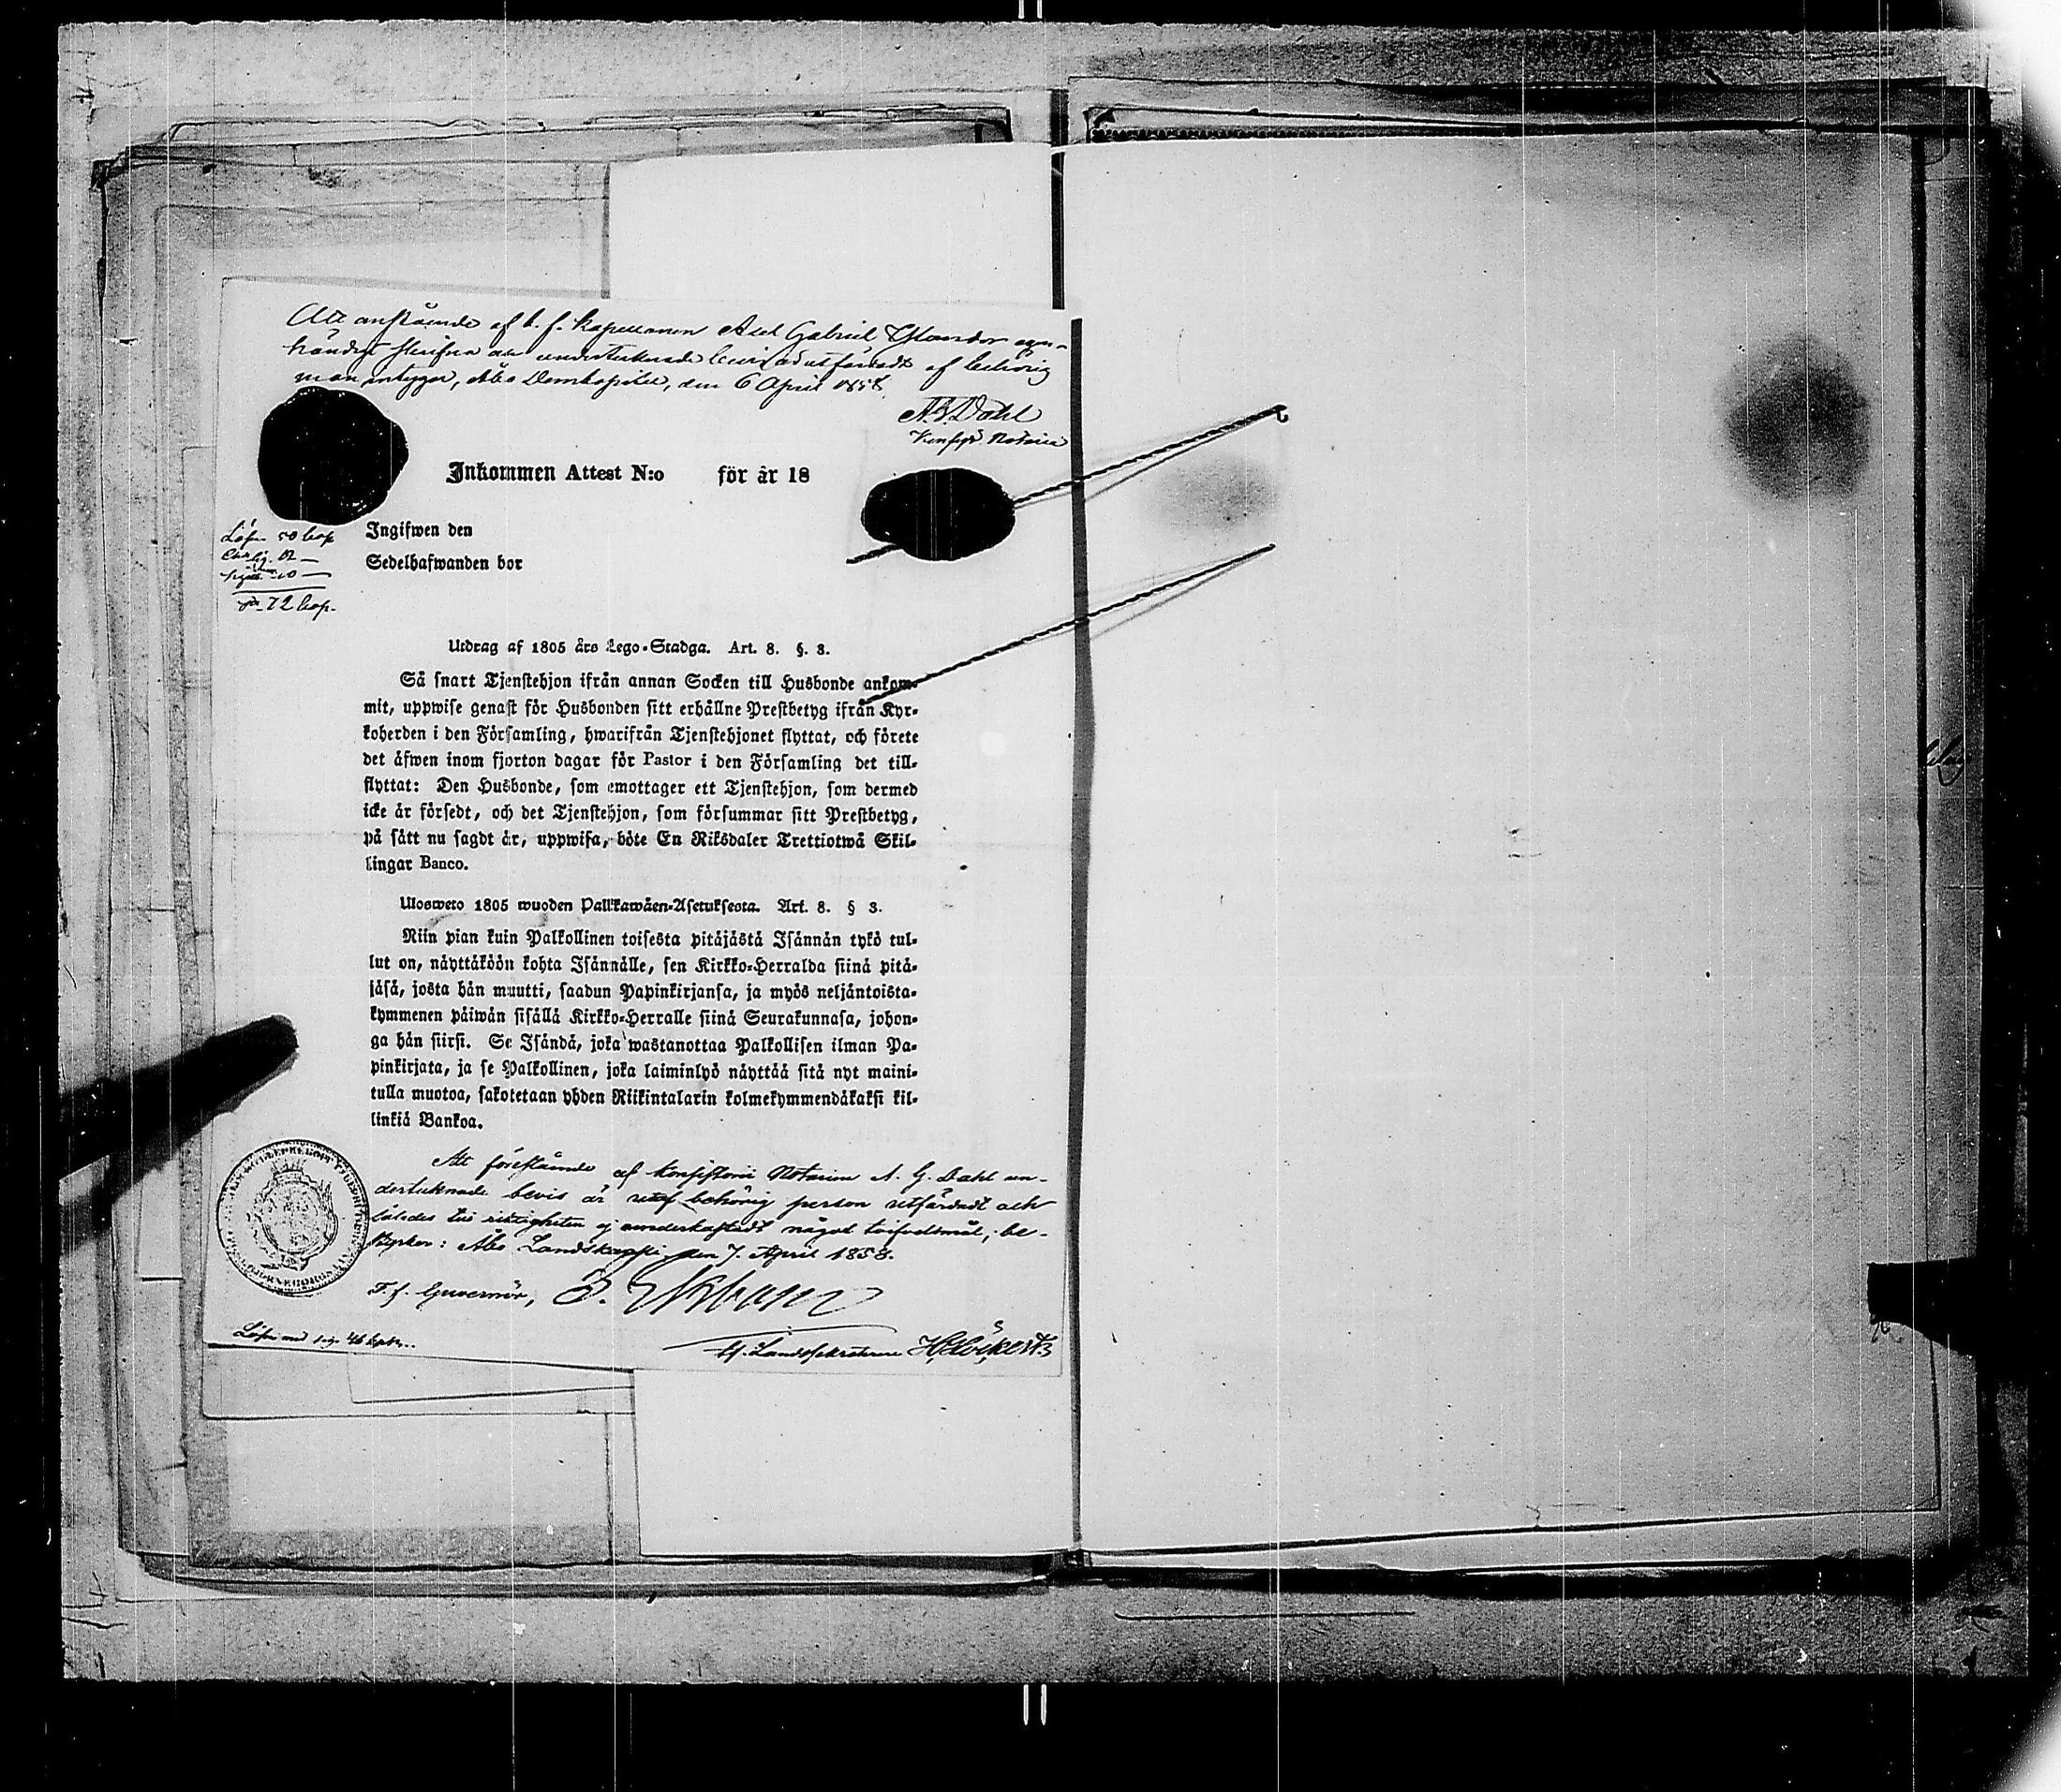 Att anstående af t. f. Kapellanen Axel Gabriel egen-
händigt skrifna och undertecknade bevis är utfärdadt af behörig
man intygar, Åbo Domkapitel, den 6 April 1858.
A. G. Dahl
Konsist. Notarie
Inkommen Attest N:o för år 18
Lösen 50 kop
10 —
72 kop.
Ingifwen den
Sedelhafwanden bor
Utdrag af 1805 års Lego-Stadga. Art. 8. §. 3.
Så snart Tjenstehjon ifrån annan Socken till Husbonde ankom-
mit, uppwise genast för Husbonden sitt erhållne Prestbetyg ifrån Kyr-
koherden i den Församling, hwarifrån Tjenstehjonet flyttat, och förete
det äfwen inom fjorton dagar för Pastor i den Församling det till-
flyttat: Den Husbonde, som emottager ett Tjenstehjon, som dermed
icke är försedt, och det Tjenstehjon, som försummar sitt Prestbetyg,
på sätt nu sagdt är, uppwisa, böte En Riksdaler Trettiotwå Skil-
lingar Banco.
Ulosweto 1805 wuoden Palkkawäen-Asetuksesta. Art. 8. § 3.
Niin pian kuin Palkollinen toisesta pitäjästä Isännän tykö tul-
lut on, näyttäköön kohta Isännälle, sen Kirkko-Herralda siinä pitä-
jäsä, josta hän muutti, saadun Papinkirjansa, ja myös neljäntoista-
kymmenen päiwän sisällä Kirkko-Herralle siinä Seurakunnasa, johon-
ga hän siirsi. Se Isändä, joka wastanottaa Palkollisen ilman Pa-
pinkirjata, ja se Palkollinen, joka laiminlyö näyttää sitä nyt maini-
tulla muotoa, sakotetaan yhden Riikintalarin kolmekymmendäkaksi kil-
linkiä Bankoa.
Att förestående af Konsistorii Notarien A. G. Dahl un-
dertecknade bevis är utaf behörig person utfärdadt och
således till riktigheten ej underkastadt något tvifvelsmål, be-
styrker: Åbo Landskansli, den 7. April 1858.
T. f. Guvernör,
Lösen med 46 kop.
Landssekreterare